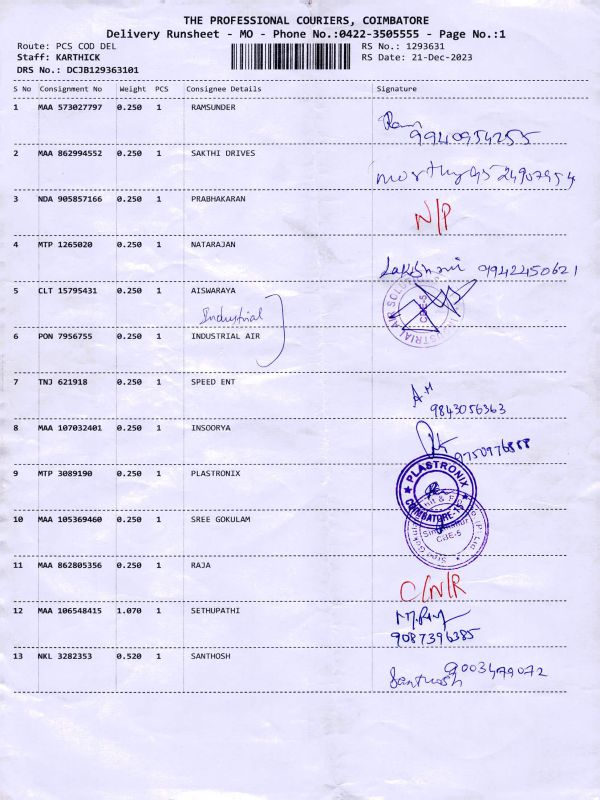 THE PROFESSIONAL COURIERS, COIMBATORE
Delivery Runsheet - MO - Phone No.:0422-3505555 - Page No.:1
Route: PCS COD DEL RS No.: 1293631
Staff: KARTHICK RS Date: 21-Dec-2023
DRS No.: DCJB129363101
S No Consignment No Weight PCS Consignee Details Signature
1 MAA 573027797 0.250 1 RAMSUNDER
Ram
9940954255
2 MAA 862994552 0.250 1 SAKTHI DRIVES
3 NDA 905857166 0.250 1 PRABHAKARAN
N/P
4 MTP 1265020 0.250 1 NATARAJAN
Lakshmi 9942450621
5 CLT 15795431 0.250 1 AISWARAYA
Industrial
6 PON 7956755 0.250 1 INDUSTRIAL AIR
CBE-5
7 TNJ 621918 0.250 1 SPEED ENT
9843056363
8 MAA 107032401 0.250 1 INSOORYA
9 MTP 3089190 0.250 1 PLASTRONIX
PLASTRONIX
COIMBATORE-15
10 MAA 105369460 0.250 1 SREE GOKULAM
CBE-5
11 MAA 862805356 0.250 1 RAJA
C/N/R
12 MAA 106548415 1.070 1 SETHUPATHI
9087396385
13 NKL 3282353 0.520 1 SANTHOSH
9003479072
Santhosh